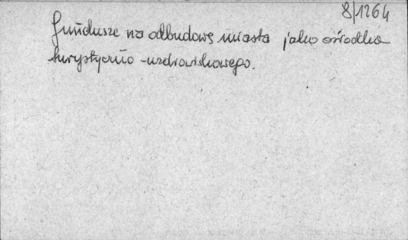 8/1264
Fundusze na odbudowę miasta jako ośrodka
turystyczno-uzdrowiskowego.